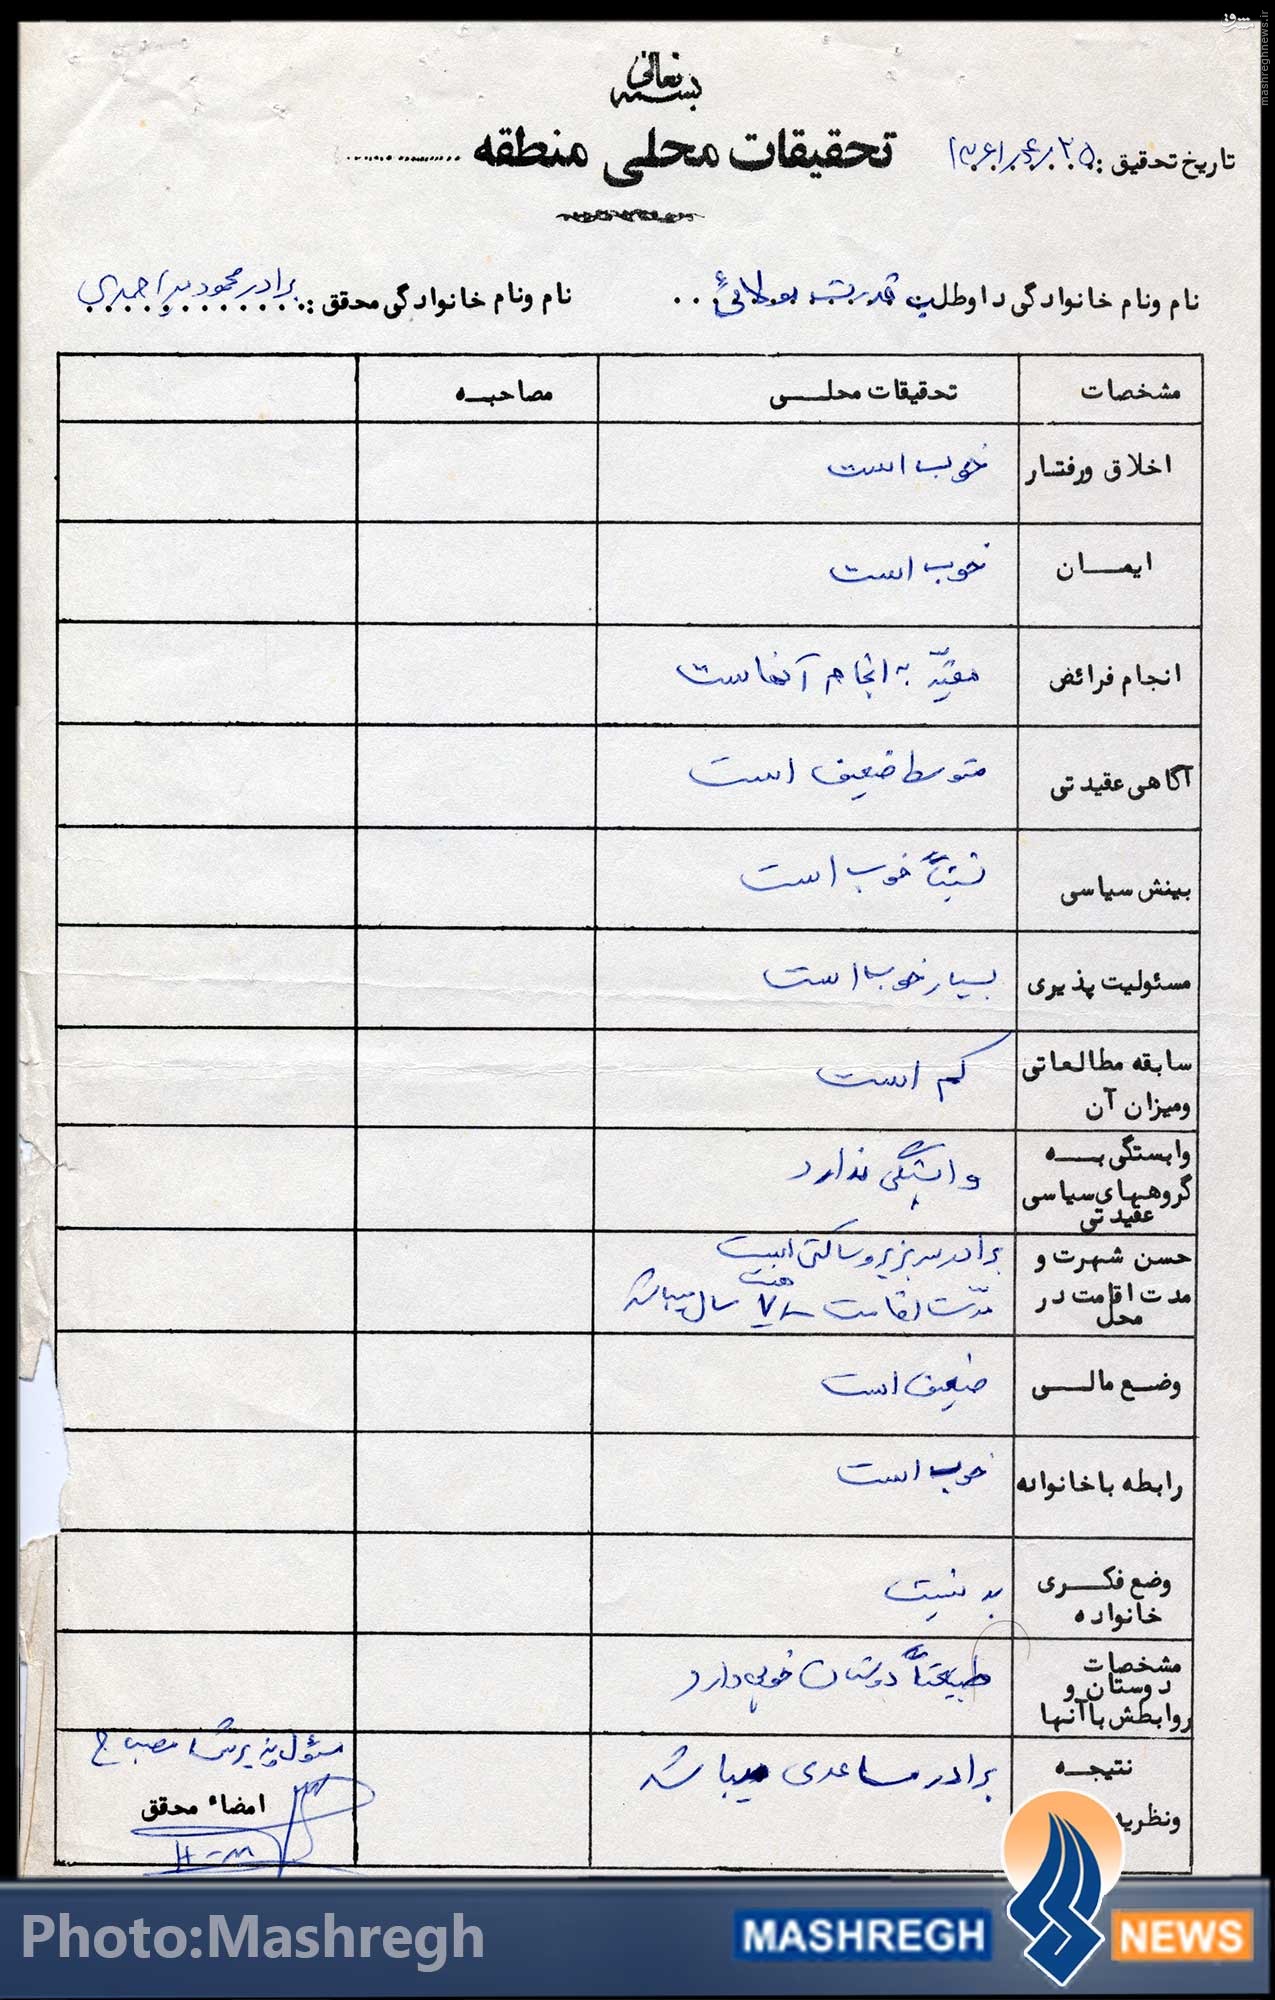 بسمه تعالی
تحقیقات محلی منطقه ..............
تاریخ تحقیق : ۲۵
نام ونام خانوادگی داوطلب قدرت مولائی
نام ونام خانوادگی محقق : برادر محمود
مشخصات تحقیقات محلی مصاحبه
اخلاق ورفتار خوب است
ایمان خوب است
انجام فرائض مقیّد به انجام آنهاست
آگاهی عقیدتی متوسط ضعیف است
بینش سیاسی نسبتاً خوب است
مسئولیت پذیری بسیار خوب است
سابقه مطالعاتی
ومیزان آن
کم است
وابستگی به
گروههای سیاسی
عقیدتی
وابستگی ندارد
حسن شهرت و
مدت اقامت در
محل
برادر سربزیر و ساکتی است
مدّت اقامت ۷ هفت سال میباشد
وضع مالی ضعیف است
رابطه باخانواده خوب است
وضع فکری
خانواده
بد نیست
مشخصات
دوستان و
روابطش باآنها
طبیعتاً دوستان خوبی دارد
نتیجه
ونظریه
برادر مساعدی میباشد
مسئول پذیرش مصباح
امضاء محقق
Photo:Mashregh
MASHREGH NEWS
mashreghnews.ir